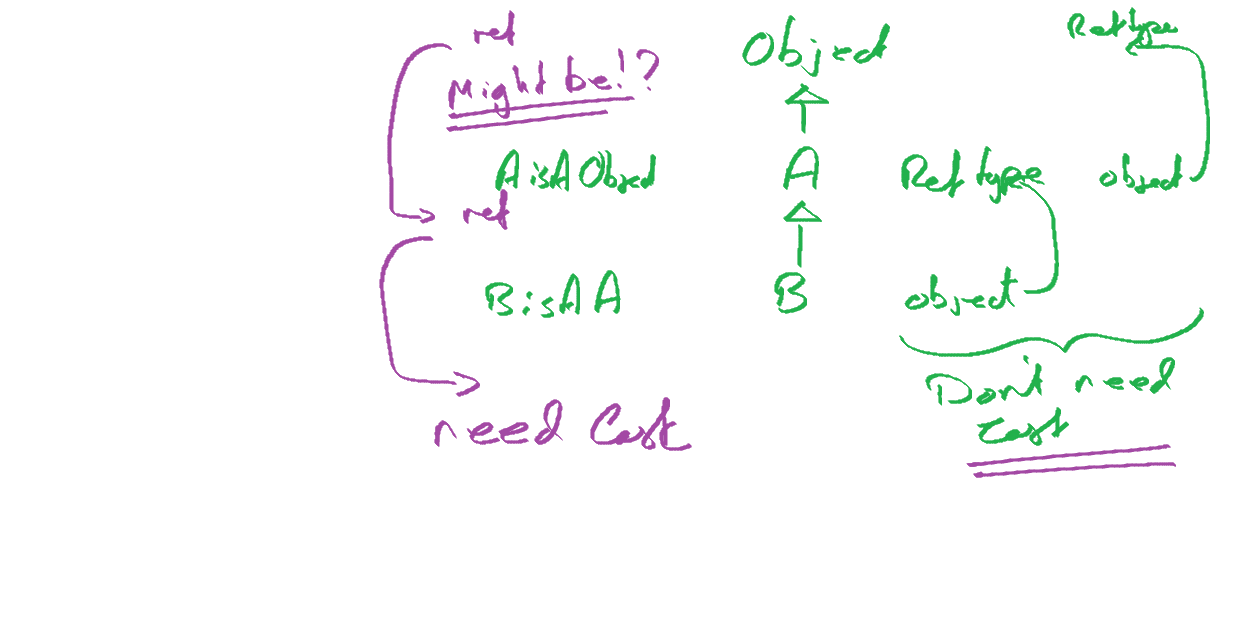 ref
Object
Ref type
Might be!?
A is A Object
A
Ref type
object
ref
B is A A
B
object
Don't need
Cast
need Cast